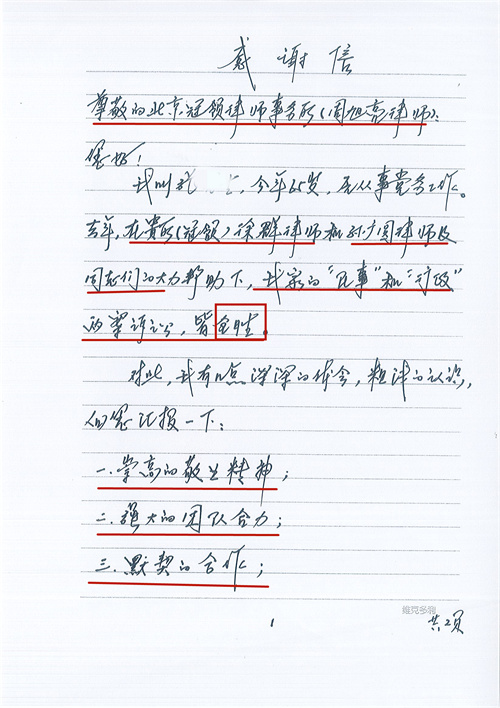 感谢信
尊敬的北京冠领律师事务所(周旭亮律师):
您好!
我叫 ,今年65岁,无从事党务工作。
去年,在贵所(冠领)徐群律师和孙广圆律师及
同志们的大力帮助下,我家的“民事”和“行政”
两案诉讼,皆全胜。
对此,我有几点深深的体会,粗浅的认识,
向您汇报一下:
一.崇高的敬业精神;
二.强大的团队合力;
三.默契的合作;
1
共2页